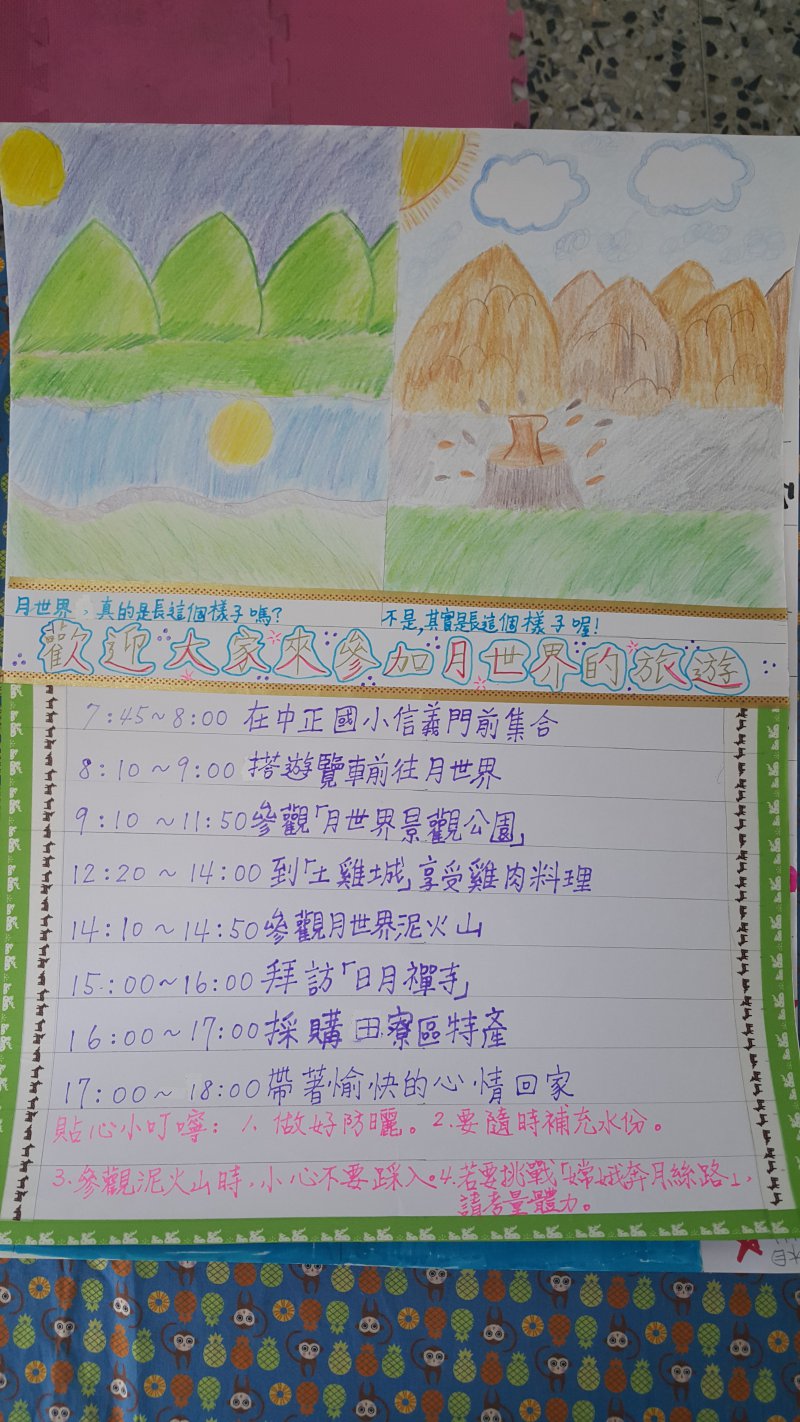 月世界，真的是長這個樣子嗎？
不是，其實是長這個樣子喔！
歡迎大家來參加月世界的旅遊
7:45~8:00 在中正國小信義門前集合
8:10~9:00 搭遊覽車前往月世界
9:10~11:50 參觀「月世界景觀公園」
12:20~14:00 到「土雞城」享受雞肉料理
14:10~14:50 參觀月世界泥火山
15:00~16:00 拜訪「日月禪寺」
16:00~17:00 採購田寮區特產
17:00~18:00 帶著愉快的心情回家
貼心小叮嚀：1、做好防曬。2、要隨時補充水份。
3、參觀泥火山時，小心不要踩入。4、若要挑戰「嫦娥奔月絲路」，
請考量體力。